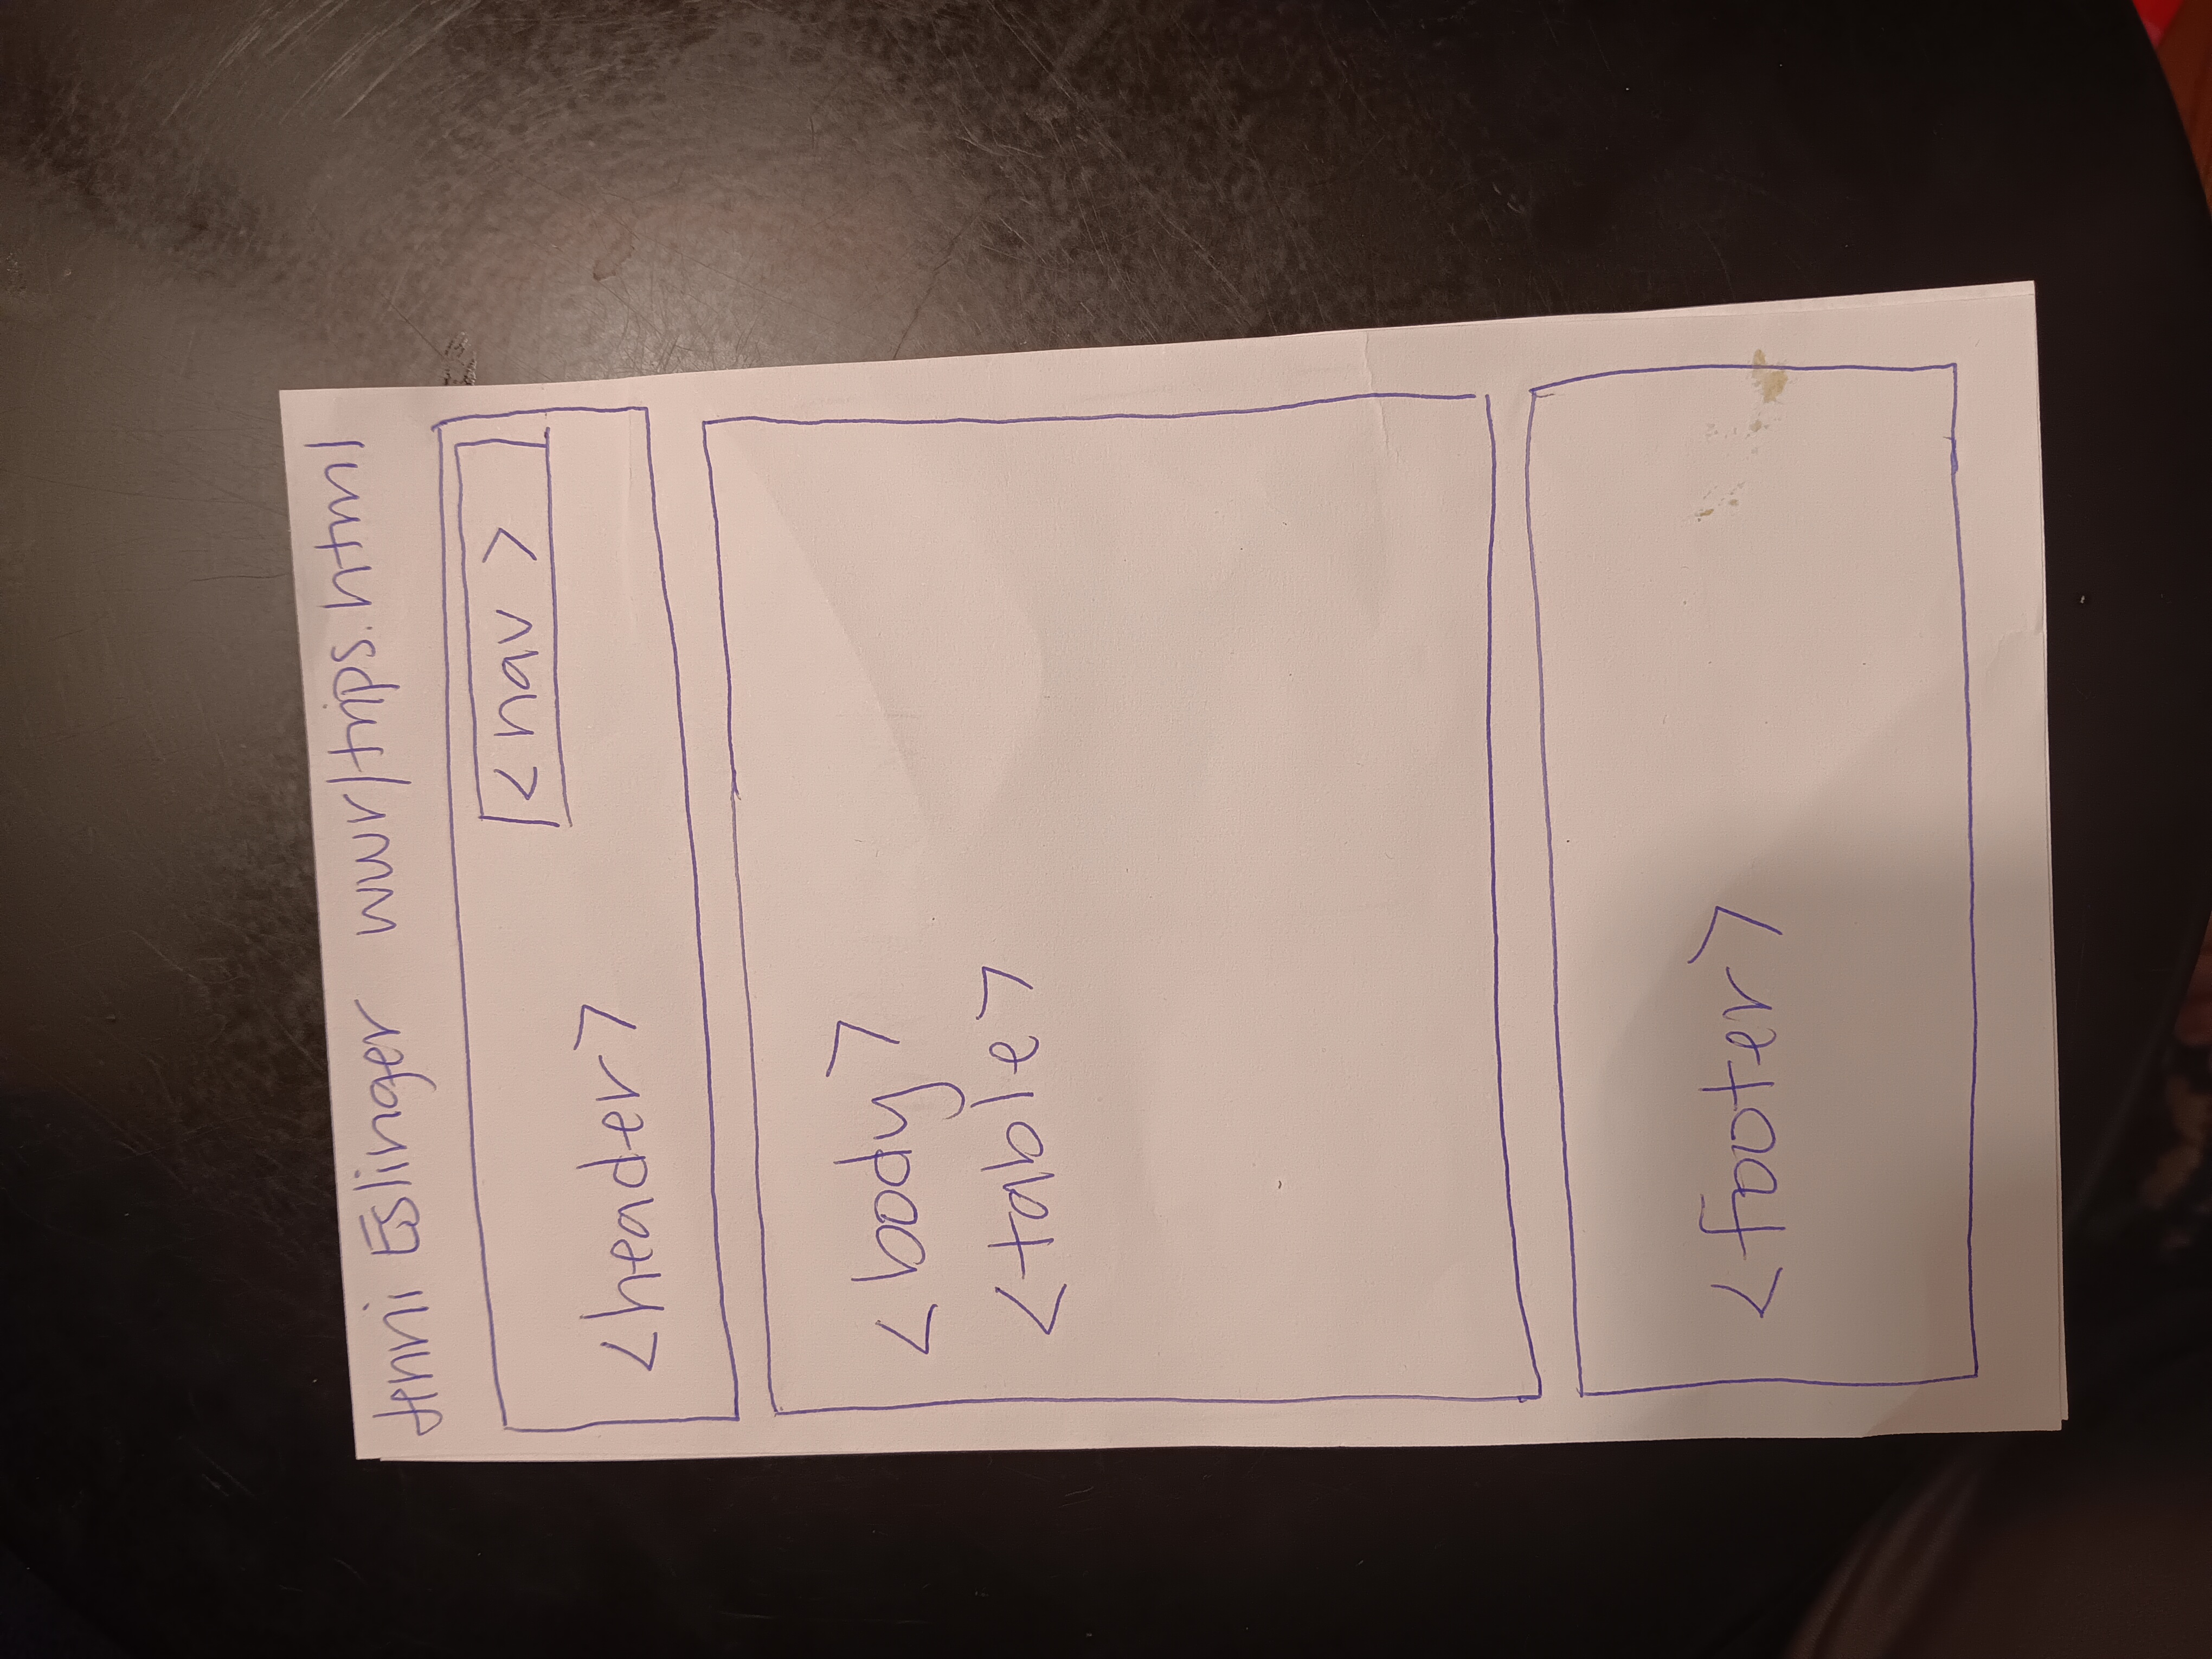 Jenni Eslinger wwr/trips.html
<nav>
<header>
<body>
<table>
<footer>